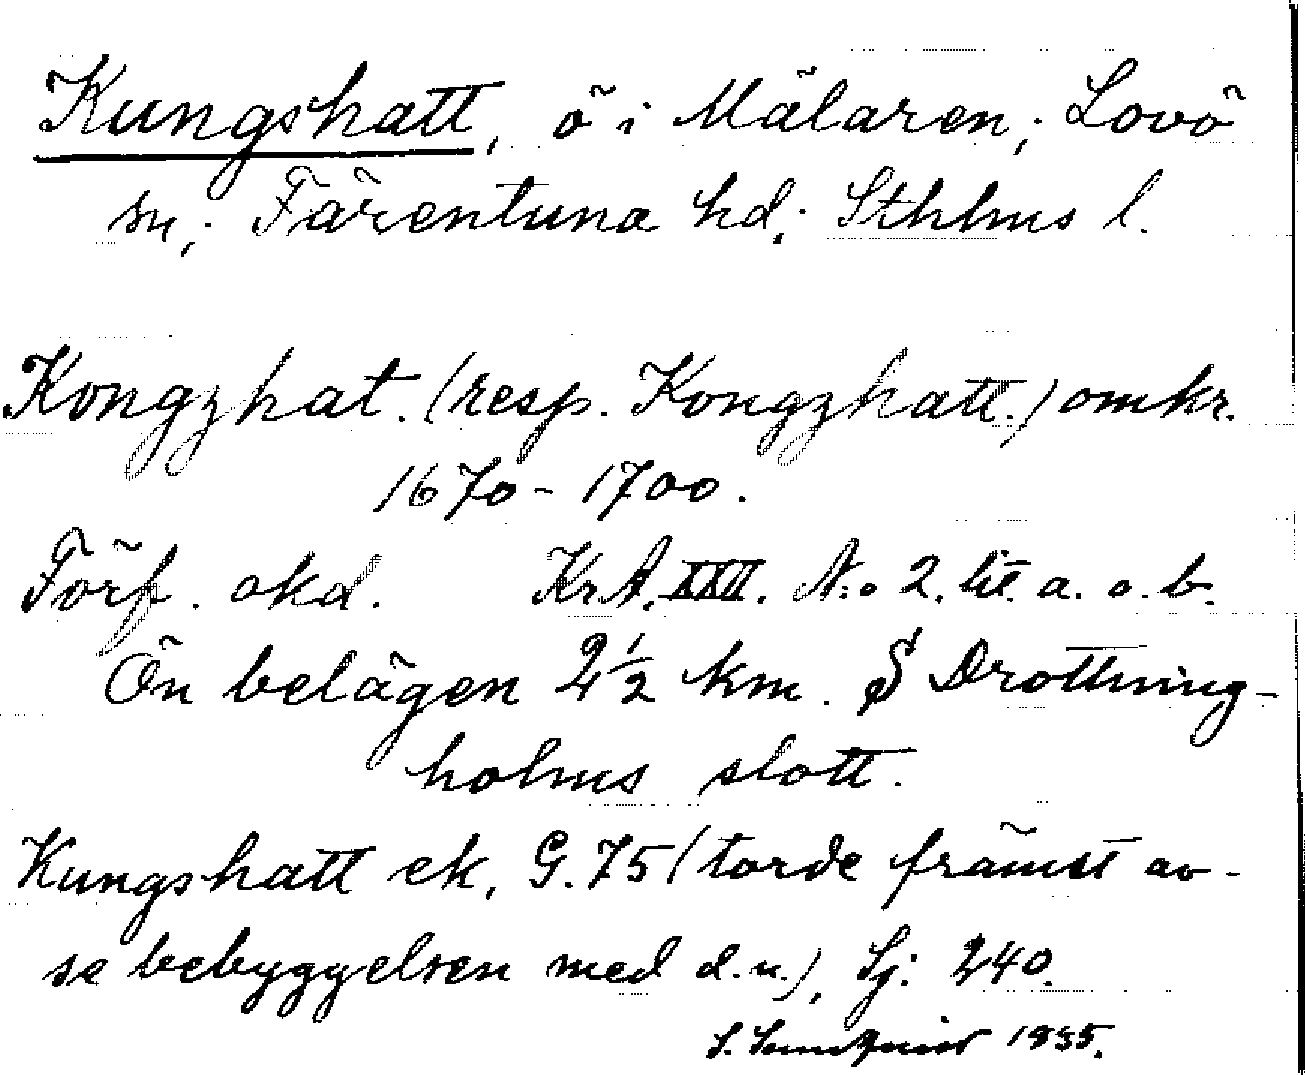 Kungshatt, ö i Mälaren; Lovö
sn; Färentuna hd; Sthlms l.
Kongzhat. (resp. Kongzhatt.) omkr.
1670-1700.
Förf. okd. KrA. XXII. N:o 2. lit. a. o. b.
Ön belägen 2½ km. S Drottning-
holms slott.
Kungshatt ek, G. 75 (torde främst av-
se bebyggelsen med d. n.), Sj: 240.
S. 1935.